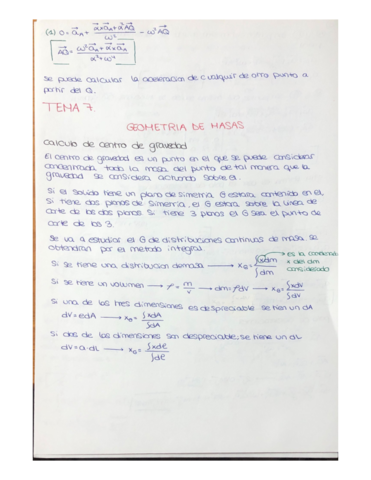 (4) 0 = a⃗A + (α⃗ × a⃗A + α² AQ⃗)/ω² - ω² AQ⃗
AQ⃗ = (ω² a⃗A + α⃗ × a⃗A)/(α² + ω⁴)
se puede calcular la aceleración de cualquier otro punto a
partir del Q.
TEMA 7.
GEOMETRIA DE MASAS
calculo de centro de gravedad
El centro de gravedad es un punto en el que se puede considerar
concentrada todo la masa del punto de tal manera que la
gravedad se considera actuando sobre G.
Si el solido tiene un plano de simetria, G estará contenido en él,
Si tiene dos planos de simetria, el G estará sobre la linea de
corte de los dos planos Si tiene 3 planos el G será el punto de
corte de los 3.
Se va a estudiar el G de distribuciones continuas de masa, se
obtendrían por el metodo integral.
es la coordenada
Si se tiene una distribucion de masa → xG = ∫xdm/∫dm
x del dm
considerado
Si se tiene un volumen → ρ = m/v → dm = ρdV → xG = ∫xdv/∫dv
Si una de las tres dimensiones es despreciable se tien un dA
dV = edA → xG = ∫xdA/∫dA
Si dos de las dimensiones son despreciable, se tiene un dL
dV = a·dL → xG = ∫xdℓ/∫dℓ